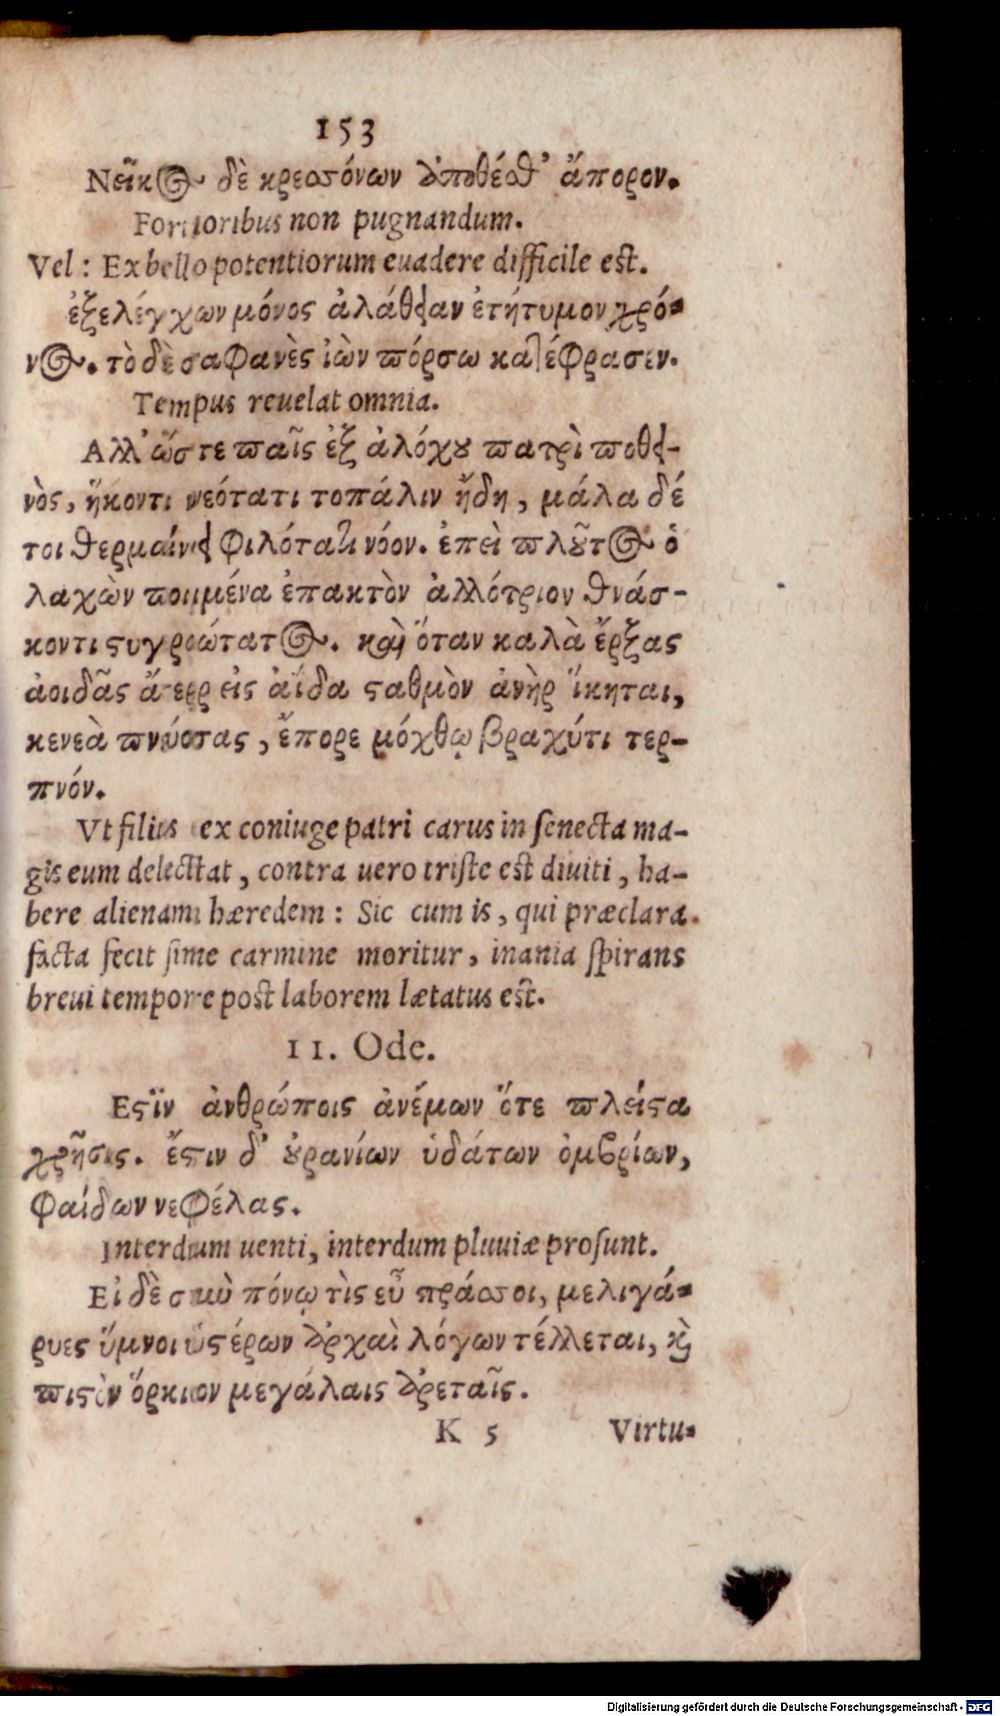 153
Νεῖκος δὲ κρεσσόνων ἀποθέσθ' ἄπορον.
Fortioribus non pugnandum.
Vel: Ex bello potentiorum euadere difficile est.
ἐξελέγχων μόνος ἀλάθειαν ἐτήτυμον χρό-
νος. τὸ δὲ σαφανὲς ἰὼν πόρσω κατέφρασεν.
Tempus reuelat omnia.
Αλλ' ὥστε παῖς ἐξ ἀλόχου πατρὶ ποθει-
νὸς, ἥκοντι νεότατι τοπάλιν ἤδη, μάλα δέ
τοι θερμαίνει φιλότατι νόον. ἐπεὶ πλοῦτος ὁ
λαχὼν ποιμένα ἐπακτὸν ἀλλότριον θνάσ-
κοντι στυγερώτατος. καὶ ὅταν καλὰ ἔρξας
ἀοιδᾶς ἄτερ εἰς ἀΐδα σταθμὸν ἀνὴρ ἵκηται,
κενεὰ πνεύσας, ἔπορε μόχθῳ βραχύτι τερ-
πνόν.
Vt filius ex coniuge patri carus in senecta ma-
gis eum delecttat, contra uero triste est diuiti, ha-
bere alienam hæredem: Sic cum is, qui præclara
facta fecit sine carmine moritur, inania spirans
breui tempore post laborem lætatus est.
11. Ode.
Εστὶν ἀνθρώποις ἀνέμων ὅτε πλείστα
χρῆσις. ἔστιν δ' οὐρανίων ὑδάτων ὀμβρίων,
φαίδων νεφέλας.
Interdum uenti, interdum pluuiæ prosunt.
Εἰ δὲ σκὺ πόνῳ τὶς εὖ πράσσοι, μελιγά-
ρυες ὕμνοι ὑστέρων ἀρχαὶ λόγων τέλλεται, καὶ
πιστὸν ὅρκιον μεγάλαις ἀρεταῖς.
K 5 Virtu-
Digitalisierung gefördert durch die Deutsche Forschungsgemeinschaft - DFG